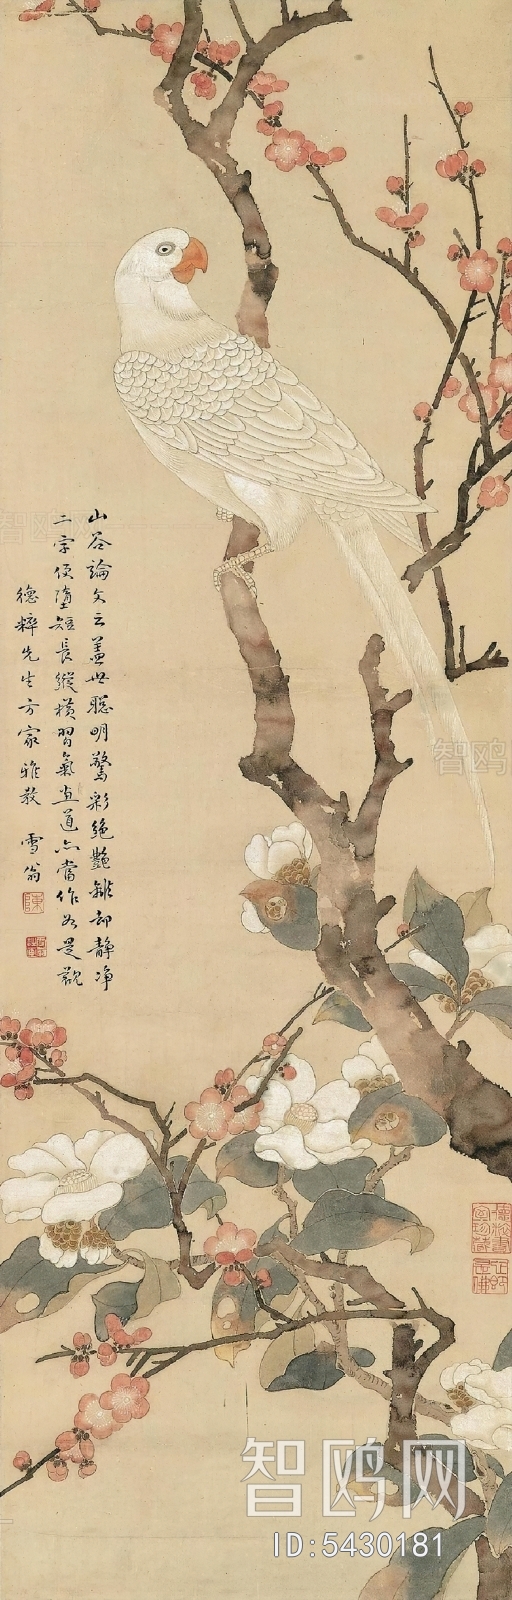 山谷論文云蓋世聰明驚彩絕艷離却靜净
二字便墮短長縱橫習氣直道亦當作如是觀
德粹先生方家雅教 雪翁
陳
智鸥网
ID:5430181